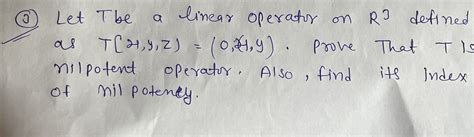 ③ Let T be a linear operator on R³ defined
as T[x,y,z) = (0,x,y). Prove That T is
nilpotent operator. Also, find its Index
of nilpotency.